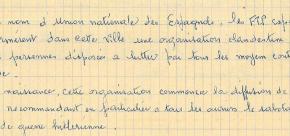 nom d'Union nationale des Espagnols, les FTP esp
dans cette ville une organisation clandestine
personnes disposées a lutter par tous les moyens cont
naissance, cette organisation commença la diffusion de
recommandant en particulier a tous les ouvriers le sabota
de guerre hitlérienne.